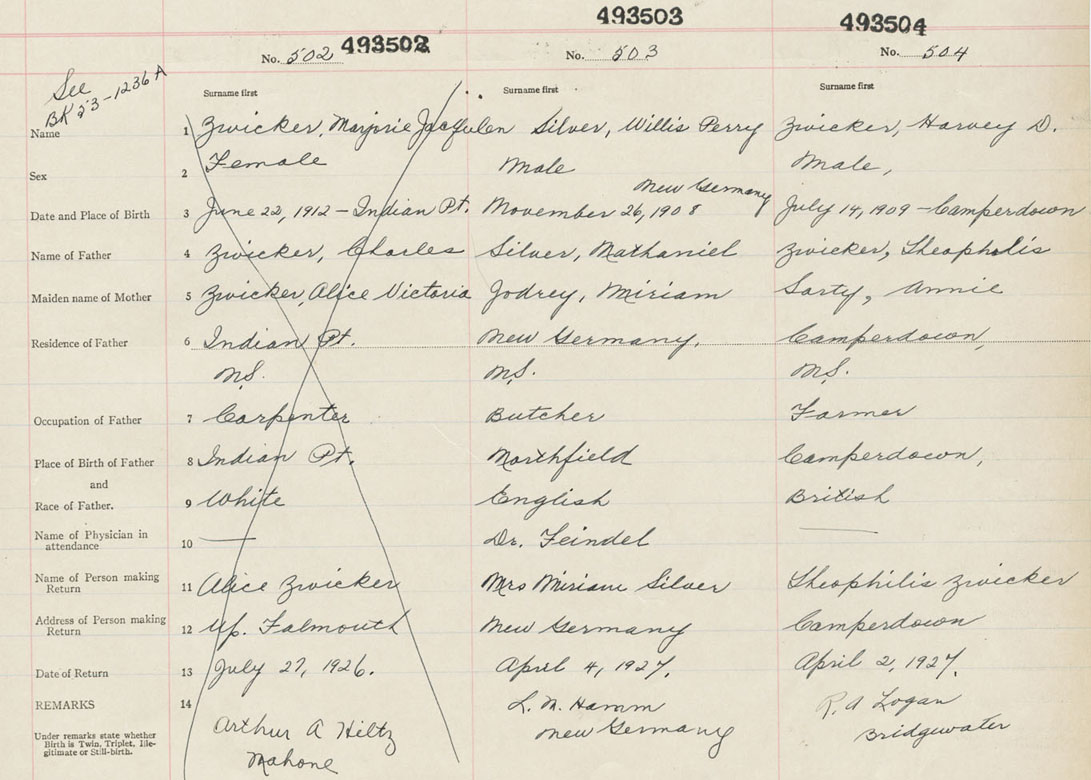 493502 493503 493504
No. 502 No. 503 No. 504
See
BK 23-1236A
Surname first Surname first Surname first
Name 1 Zwicker, Marjorie Silver, Willis Perry Zwicker, Harvey D.
Sex 2 Female Male Male,
New Germany
Date and Place of Birth 3 June 22, 1912 – Indian Pt. November 26, 1908 July 14, 1909 – Camperdown
Name of Father 4 Zwicker, Charles Silver, Nathaniel Zwicker, Theophilis
Maiden name of Mother 5 Zwicker, Alice Victoria Jodrey, Miriam Sarty, Annie
Residence of Father 6 Indian Pt. New Germany, Camperdown,
N.S. N.S. N.S.
Occupation of Father 7 Carpenter Butcher Farmer
Place of Birth of Father 8 Indian Pt. Northfield Camperdown,
and
Race of Father. 9 White English British
Name of Physician in
attendance 10 — Dr. Feindel —
Name of Person making
Return 11 Alice Zwicker Mrs Miriam Silver Theophilis Zwicker
Address of Person making
Return 12 Up. Falmouth New Germany Camperdown
Date of Return 13 July 27, 1926. April 4, 1927. April 2, 1927.
REMARKS 14 L. N. Hamm R. A Logan
Under remarks state whether
Birth is Twin, Triplet, Ille-
gitimate or Still-birth.
Arthur A Hiltz New Germany Bridgewater
Mahone